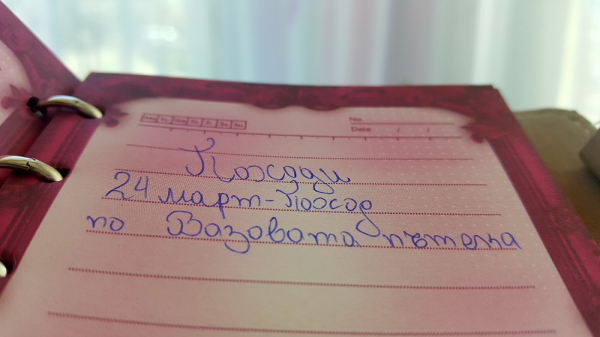 No.
Date / /
Походи
24 март-Поход
по Вазовата пътека